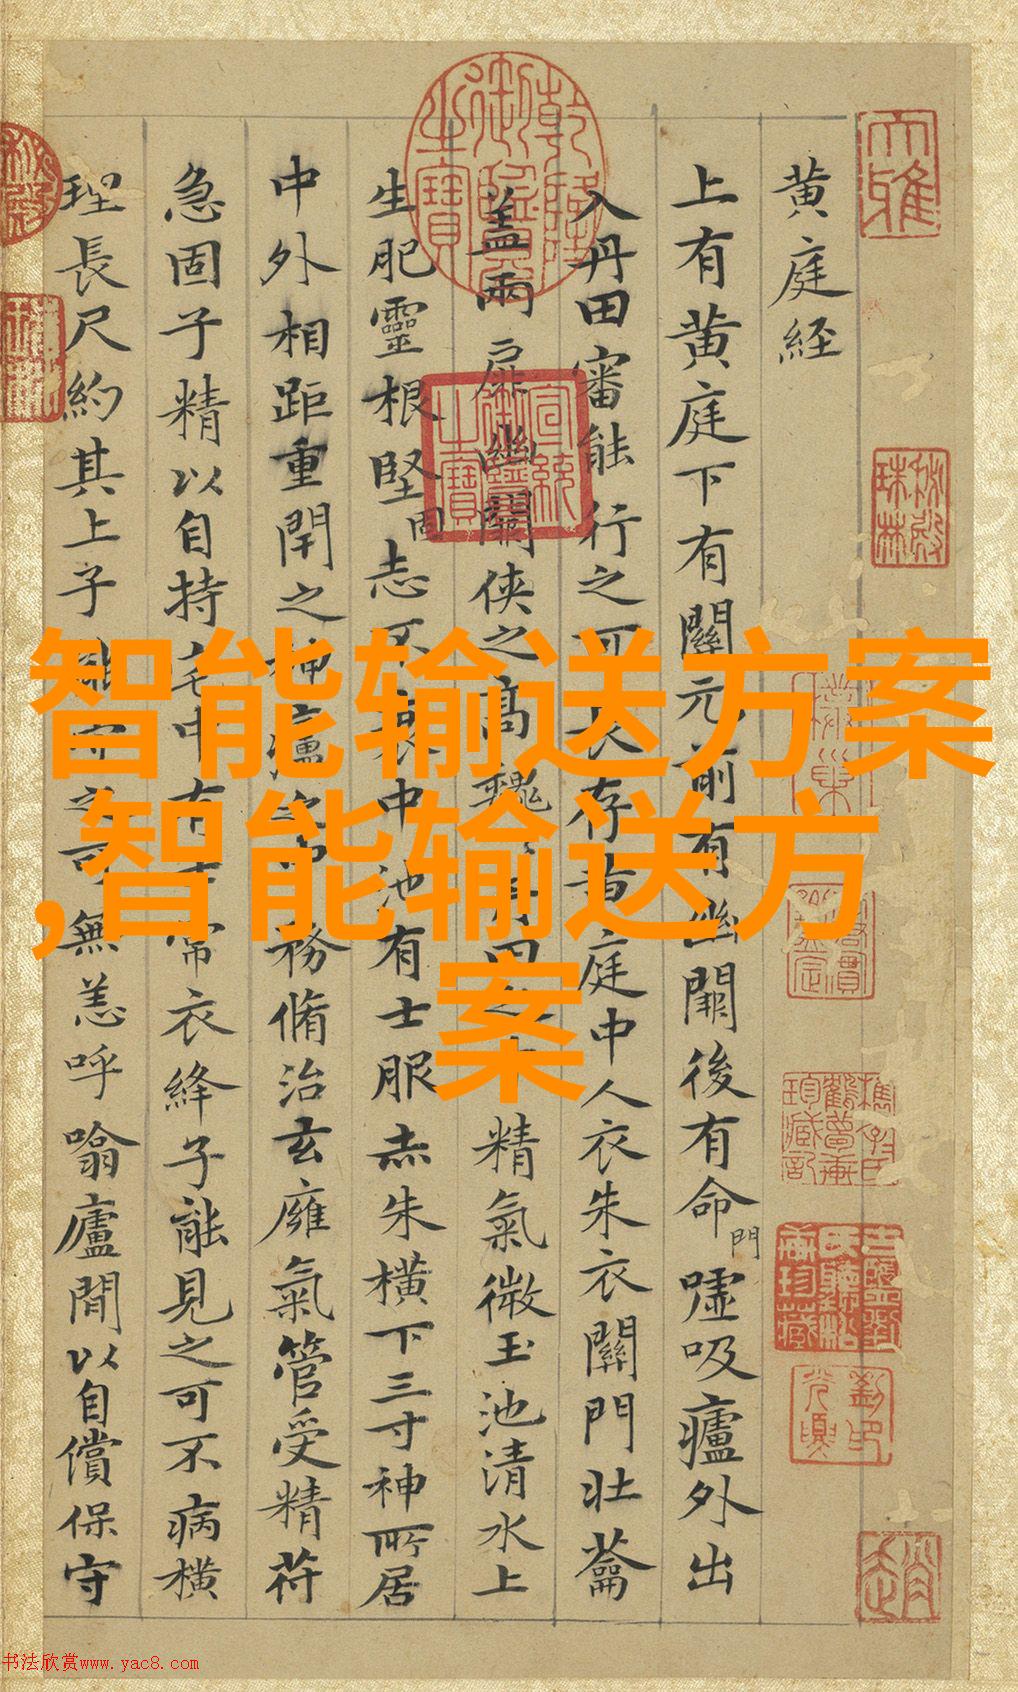 黄庭経
上有黄庭下有關元前有幽闕後有命門噓吸廬外出
入丹田審能行之可長存黄庭中人衣朱衣關門壮蘥
盖兩扉幽闕俠之高巍丹田之中精氣微玉池清水上
生肥靈根堅固志不衰中池有士服赤朱横下三寸神所居
中外相距重閇之神廬之中務脩治玄廱氣管受精苻
急固子精以自持宅中有士常衣絳子能見之可不病横
理長尺約其上子能守之可無恙呼噏廬間以自償保守
大雅
乾隆御覽之寳
宣統御覽之寳
智能输送方案
,智能输送方
案
书法欣赏www.yac8.com